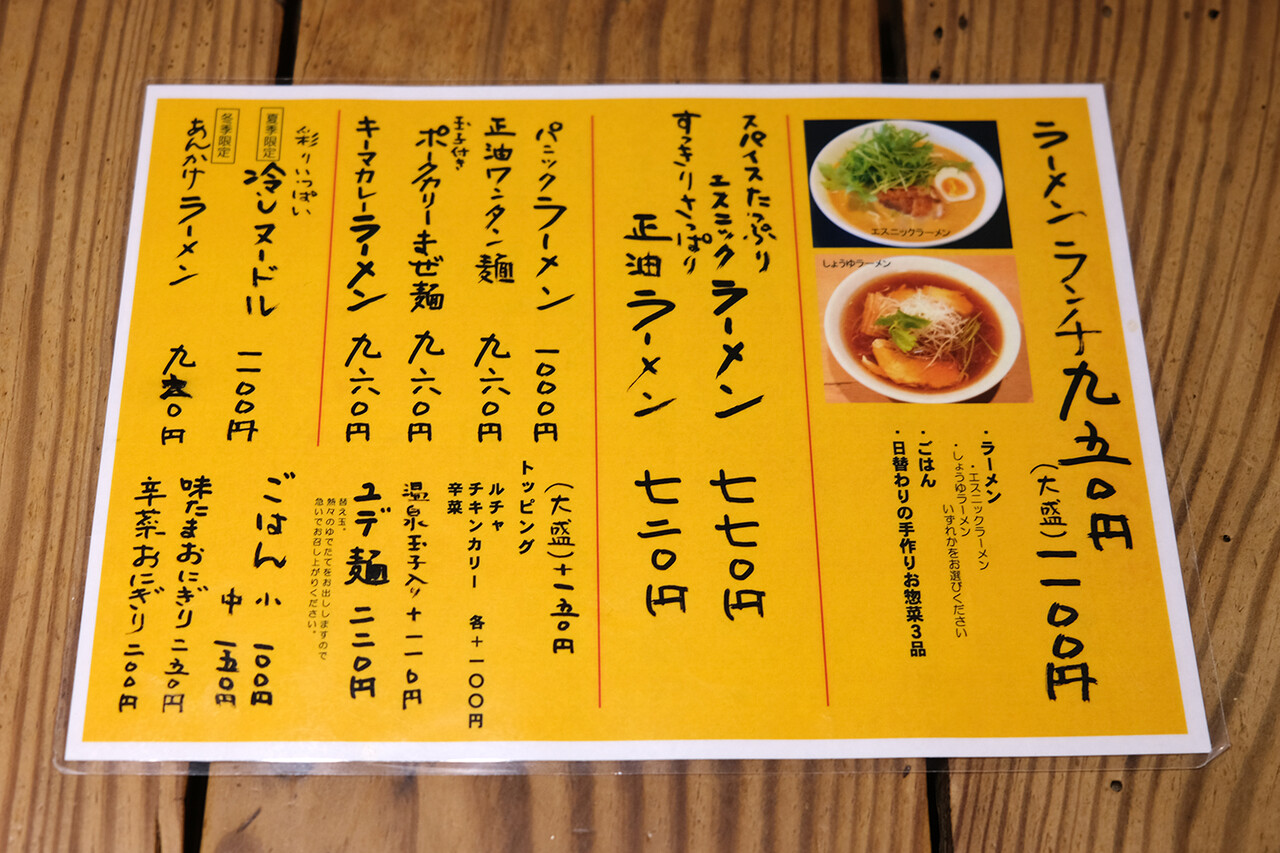 ラーメンランチ九五〇円
(大盛)一一〇〇円
エスニックラーメン
しょうゆラーメン
・ラーメン
・エスニックラーメン
・しょうゆラーメン
いずれかをお選びください
・ごはん
・日替わりの手作りお惣菜3品
スパイスたっぷり
エスニックラーメン 七七〇円
すっきりさっぱり
正油ラーメン 七二〇円
パニックラーメン 一〇〇〇円
正油ワンタン麺 九六〇円
玉子付き
ポークカリーまぜ麺 九六〇円
キーマカレーラーメン 九六〇円
彩りいっぱい
夏季限定
冷しヌードル 一一〇〇円
冬季限定
あんかけラーメン 九 〇円
(大盛)+一五〇円
トッピング
ルチャ
チキンカリー 各+一〇〇円
辛菜
温泉玉子入り+一一〇円
ユデ麺 二二〇円
替え玉。
熱々のゆでたてをお出ししますので
急いでお召し上がりください。
ごはん 小 一〇〇円
中 一五〇円
味たまおにぎり 二五〇円
辛菜おにぎり 二〇〇円